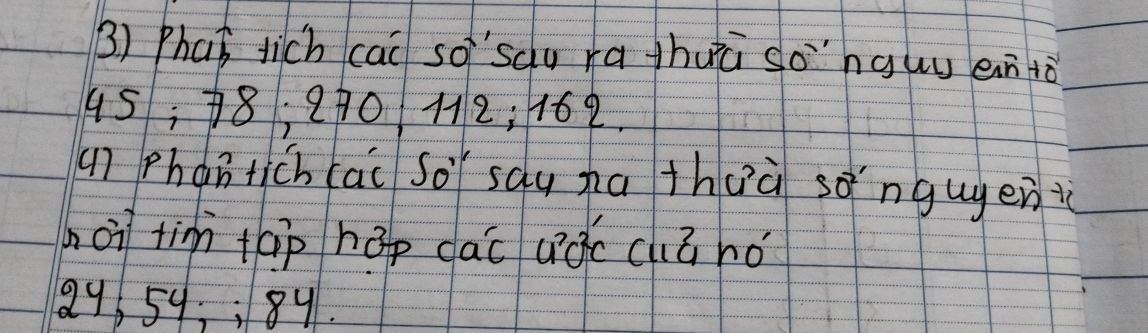 3) Phân tích các số sau ra thừa số nguyên tố
45 ; 78 ; 270 ; 112 ; 162.
4) Phân tích các số sau ra thừa số nguyên tố
rồi tìm tập hợp các ước của nó
24 ; 54 ; ; 84.